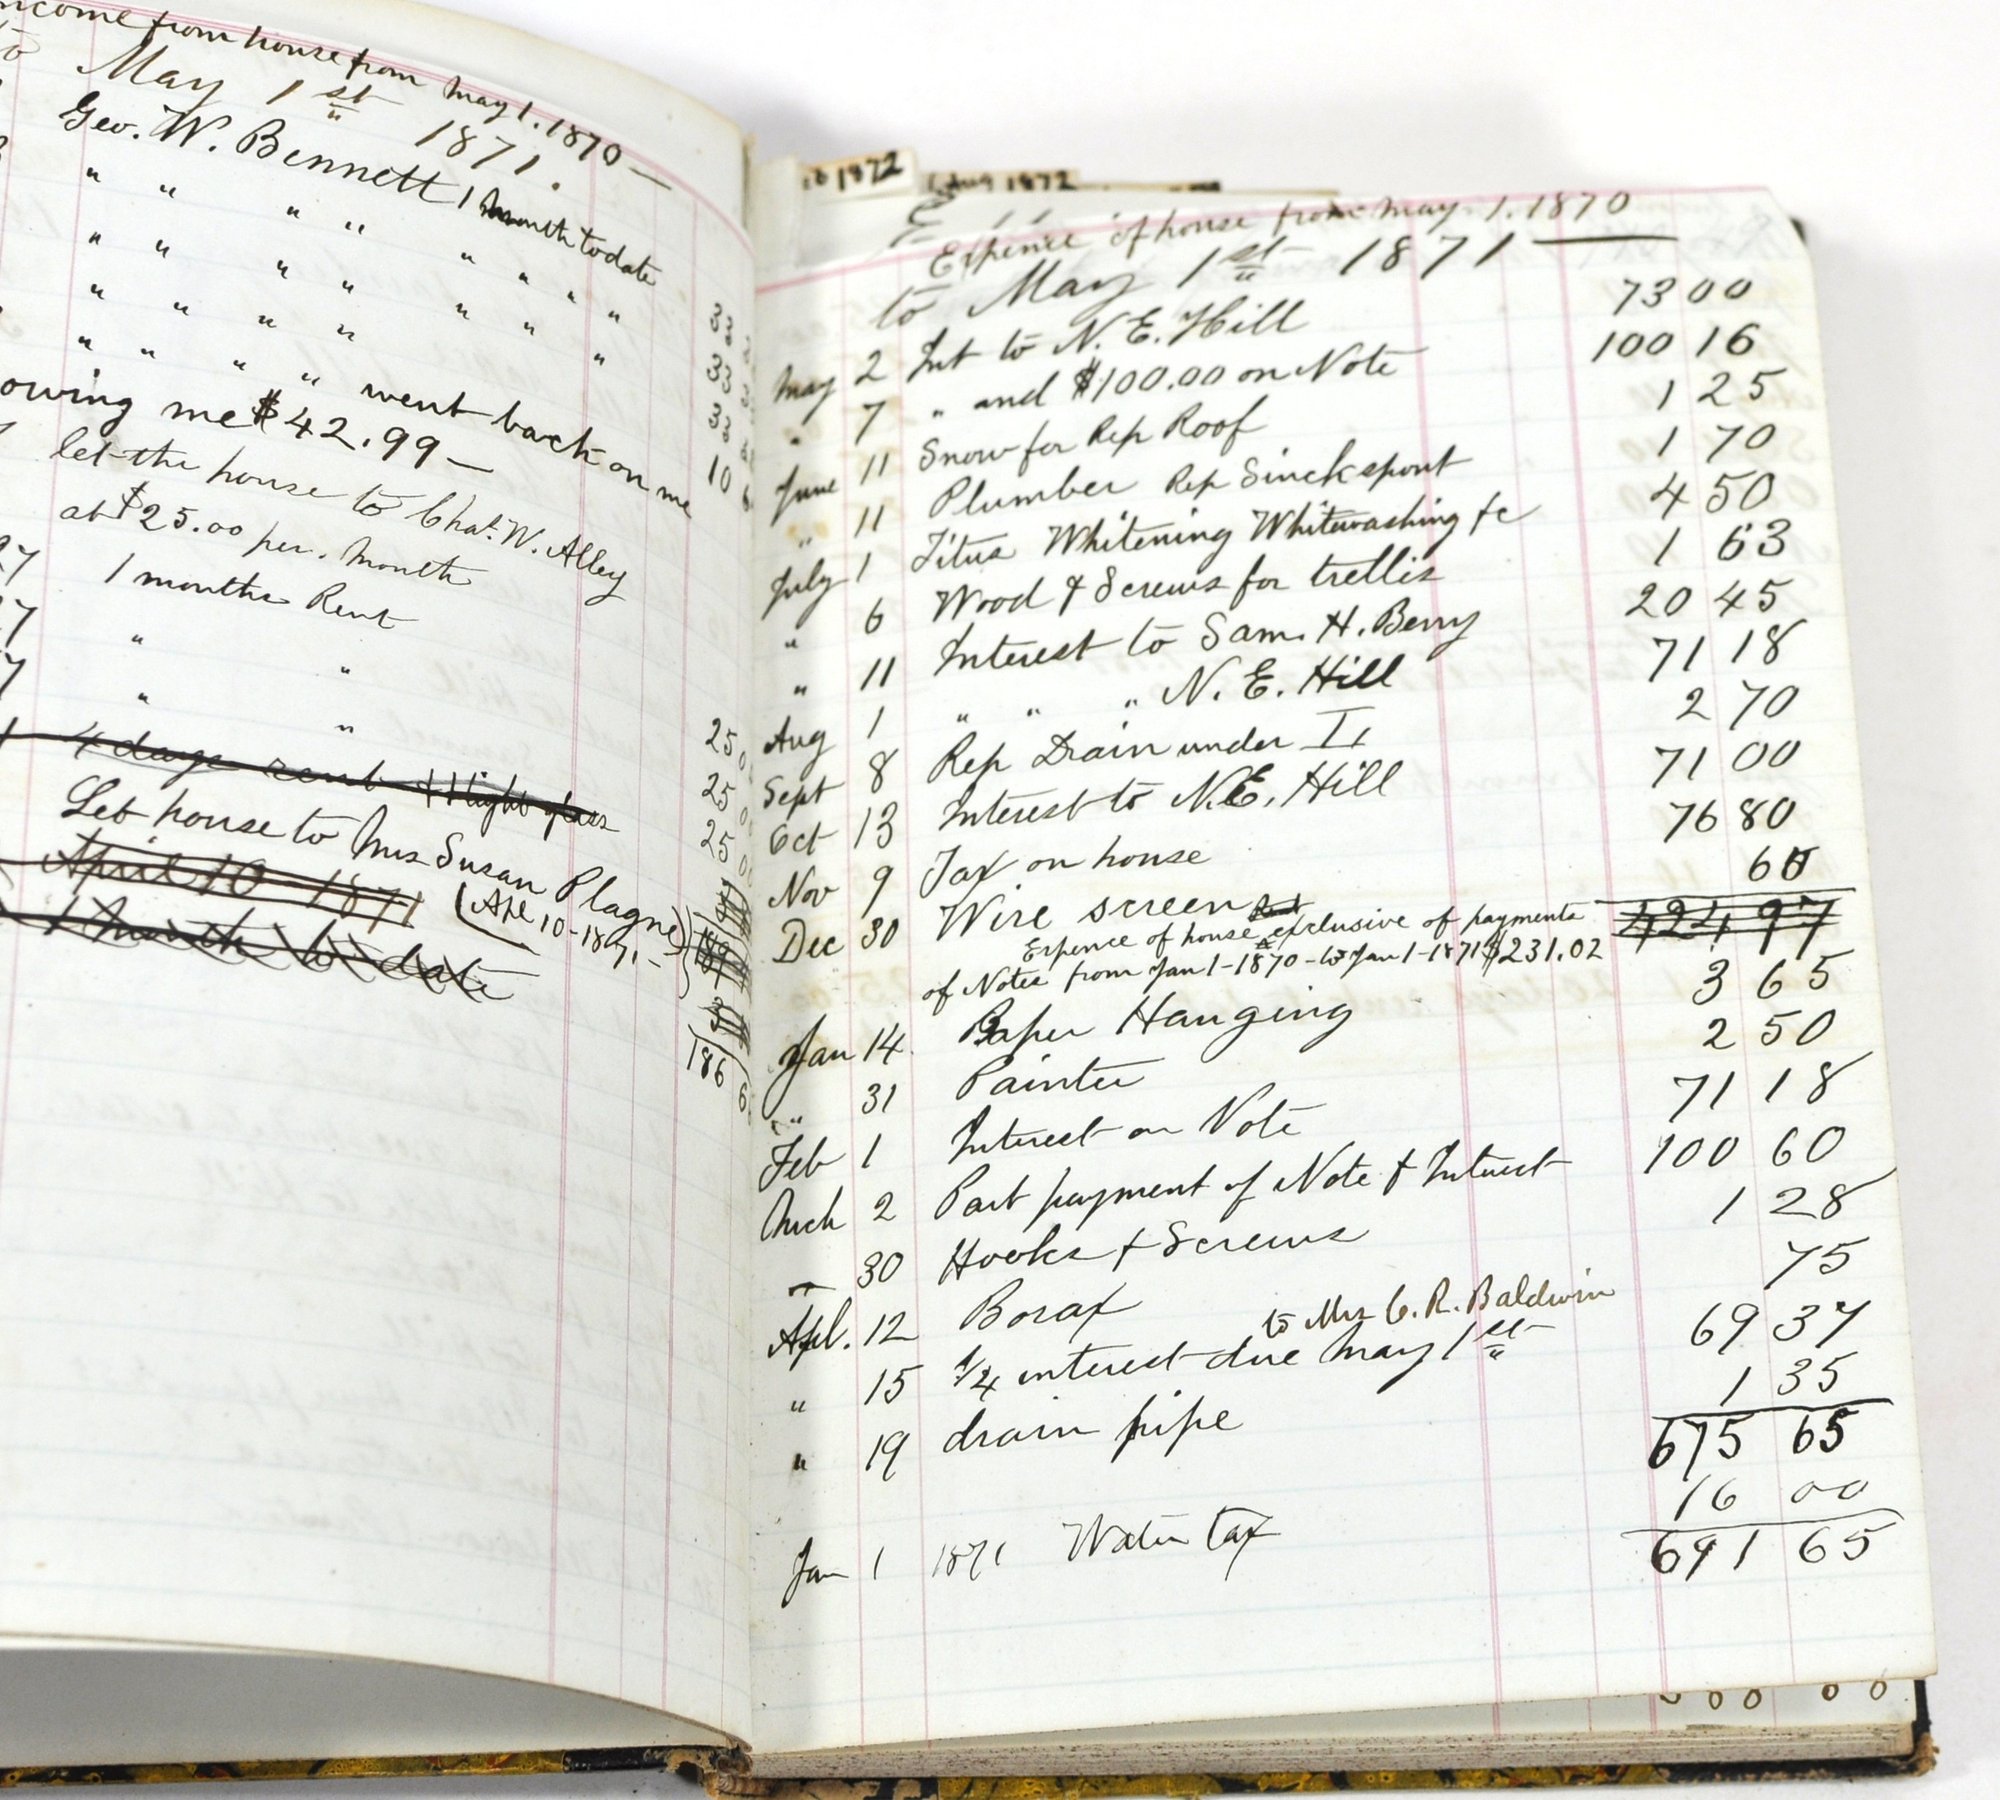 income from house from May 1. 1870 —
to May 1st 1871.
Geo. W. Bennett 1 month to date
" " " " " " " " 33
" " " " " " " 33
" " " " 33
" " " " went back on me 10
owing me $42.99 —
let the house to Chat. W. Alley
at $25.00 per. Month
27 1 months Rent 25 0
27 " " 25 0
7 " " 25 00
4 days rent & 1 light glass
Let house to Mrs Susan Plagne
April 10 - 1871 (Apl 10 - 1871 -
1 Month to date
186 6
1872
Aug 1872
Expence of house from May. 1. 1870
to May 1st 1871
May 2 Int to N. E. Hill 73 00
" 7 " and $100.00 on Note 100 16
June 11 Snow for Rep Roof 1 25
" 11 Plumber Rep Sinck spout 1 70
July 1 Titus Whitening Whitewashing &c 4 50
" 6 Wood & Screws for trellis 1 63
" 11 Interest to Sam. H. Berry 20 45
Aug 1 " " " N. E. Hill 71 18
Sept 8 Rep Drain under I, 2 70
Oct 13 Interest to N.E. Hill 71 00
Nov 9 Tax on house 76 80
Dec 30 Wire screen 60
Expence of house exclusive of payments 424 97
of Notes from Jan 1 - 1870 - to Jan 1 - 1871 $231.02
Jan 14 Paper Hanging 3 65
" 31 Painter 2 50
Feb 1 Interest on Note 71 18
Mch 2 Part payment of Note & Interest 100 60
" 30 Hooks & Screws 1 28
Apl. 12 Borax 75
to Mrs C. R. Baldwin
" 15 1/4 interest due May 1st 69 37
" 19 drain pipe 1 35
675 65
Jan 1 1871 Water tax 16 00
691 65
00 00